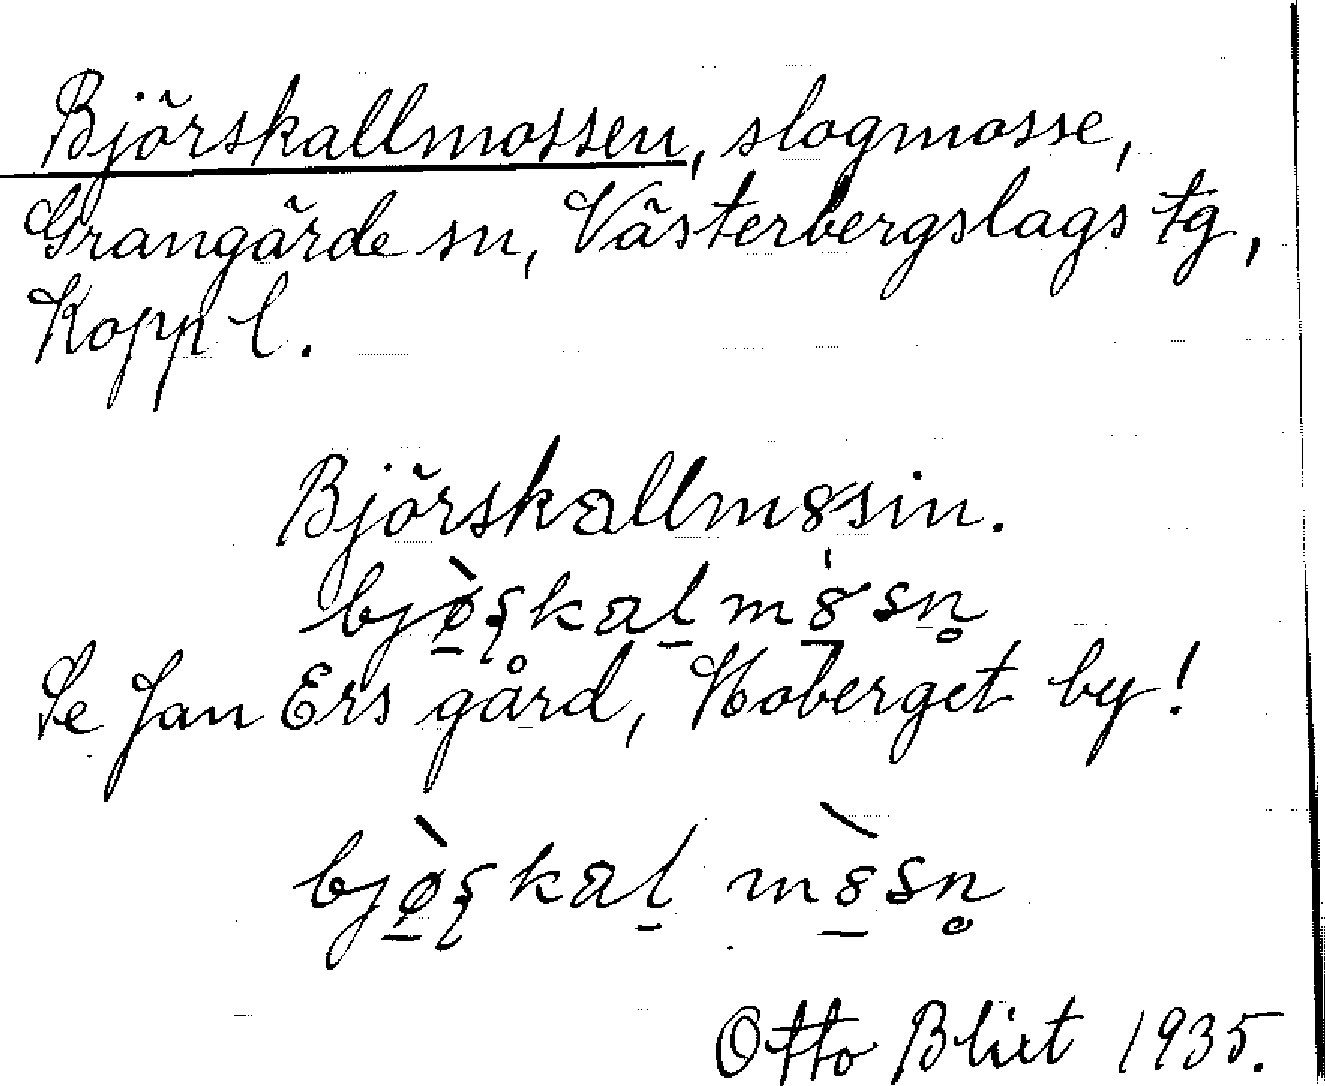 Björskallmossen, slogmosse,
Grangärde sn, Västerbergslags tg,
Kopp l.
Björskallmȣsin.
bjø̱̀ʂkaḻmȣ̱́sn̥
Se Jan Ers gård, Hoberget by!
bjø̱̀ʂkaḻ mȣ̱̀sn̥
Otto Blixt 1935.